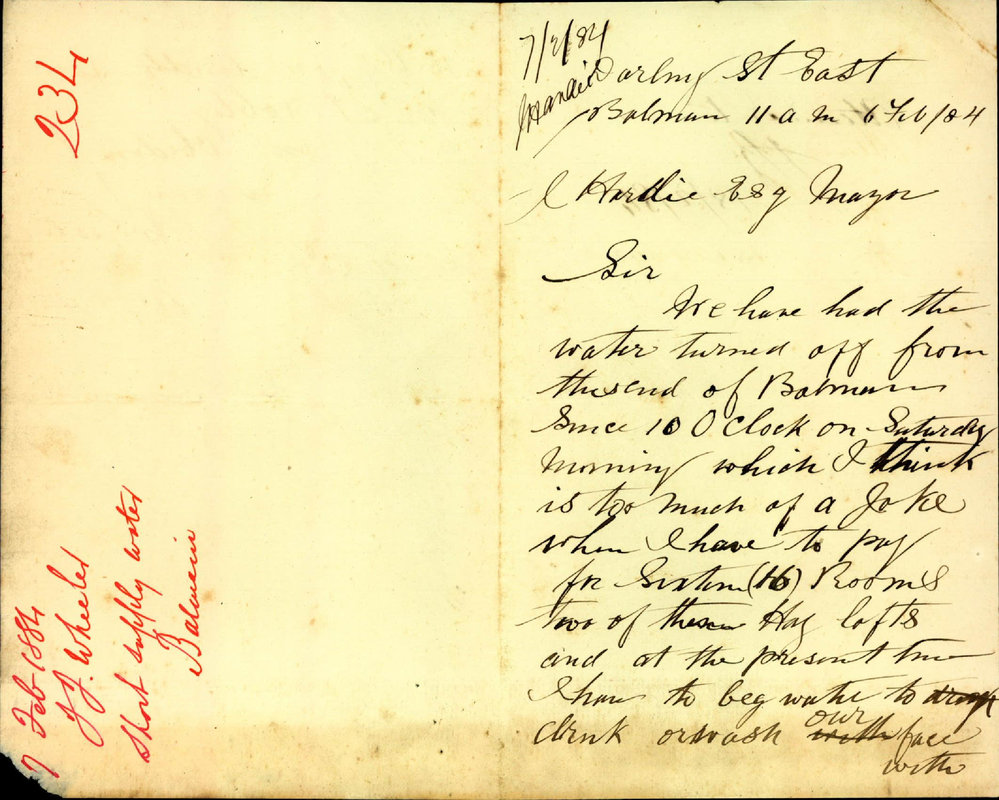 234
7 Feb 1884
J J. Wheeler
Short supply water
Balmain
7/2/84
J Hardie
Darling St East
Balman 11 a m 6 Feb/84
J Hardie Esq Mayor
Sir
We have had the
water turned off from
thisend of Balman
Since 10 O Clock on Saturday
Morning which I think
is too much of a Joke
when I have to pay
for Sixteen (16) Rooms
two of them Hay lofts
and at the present time
I have to beg water to
drink or wash our face
with